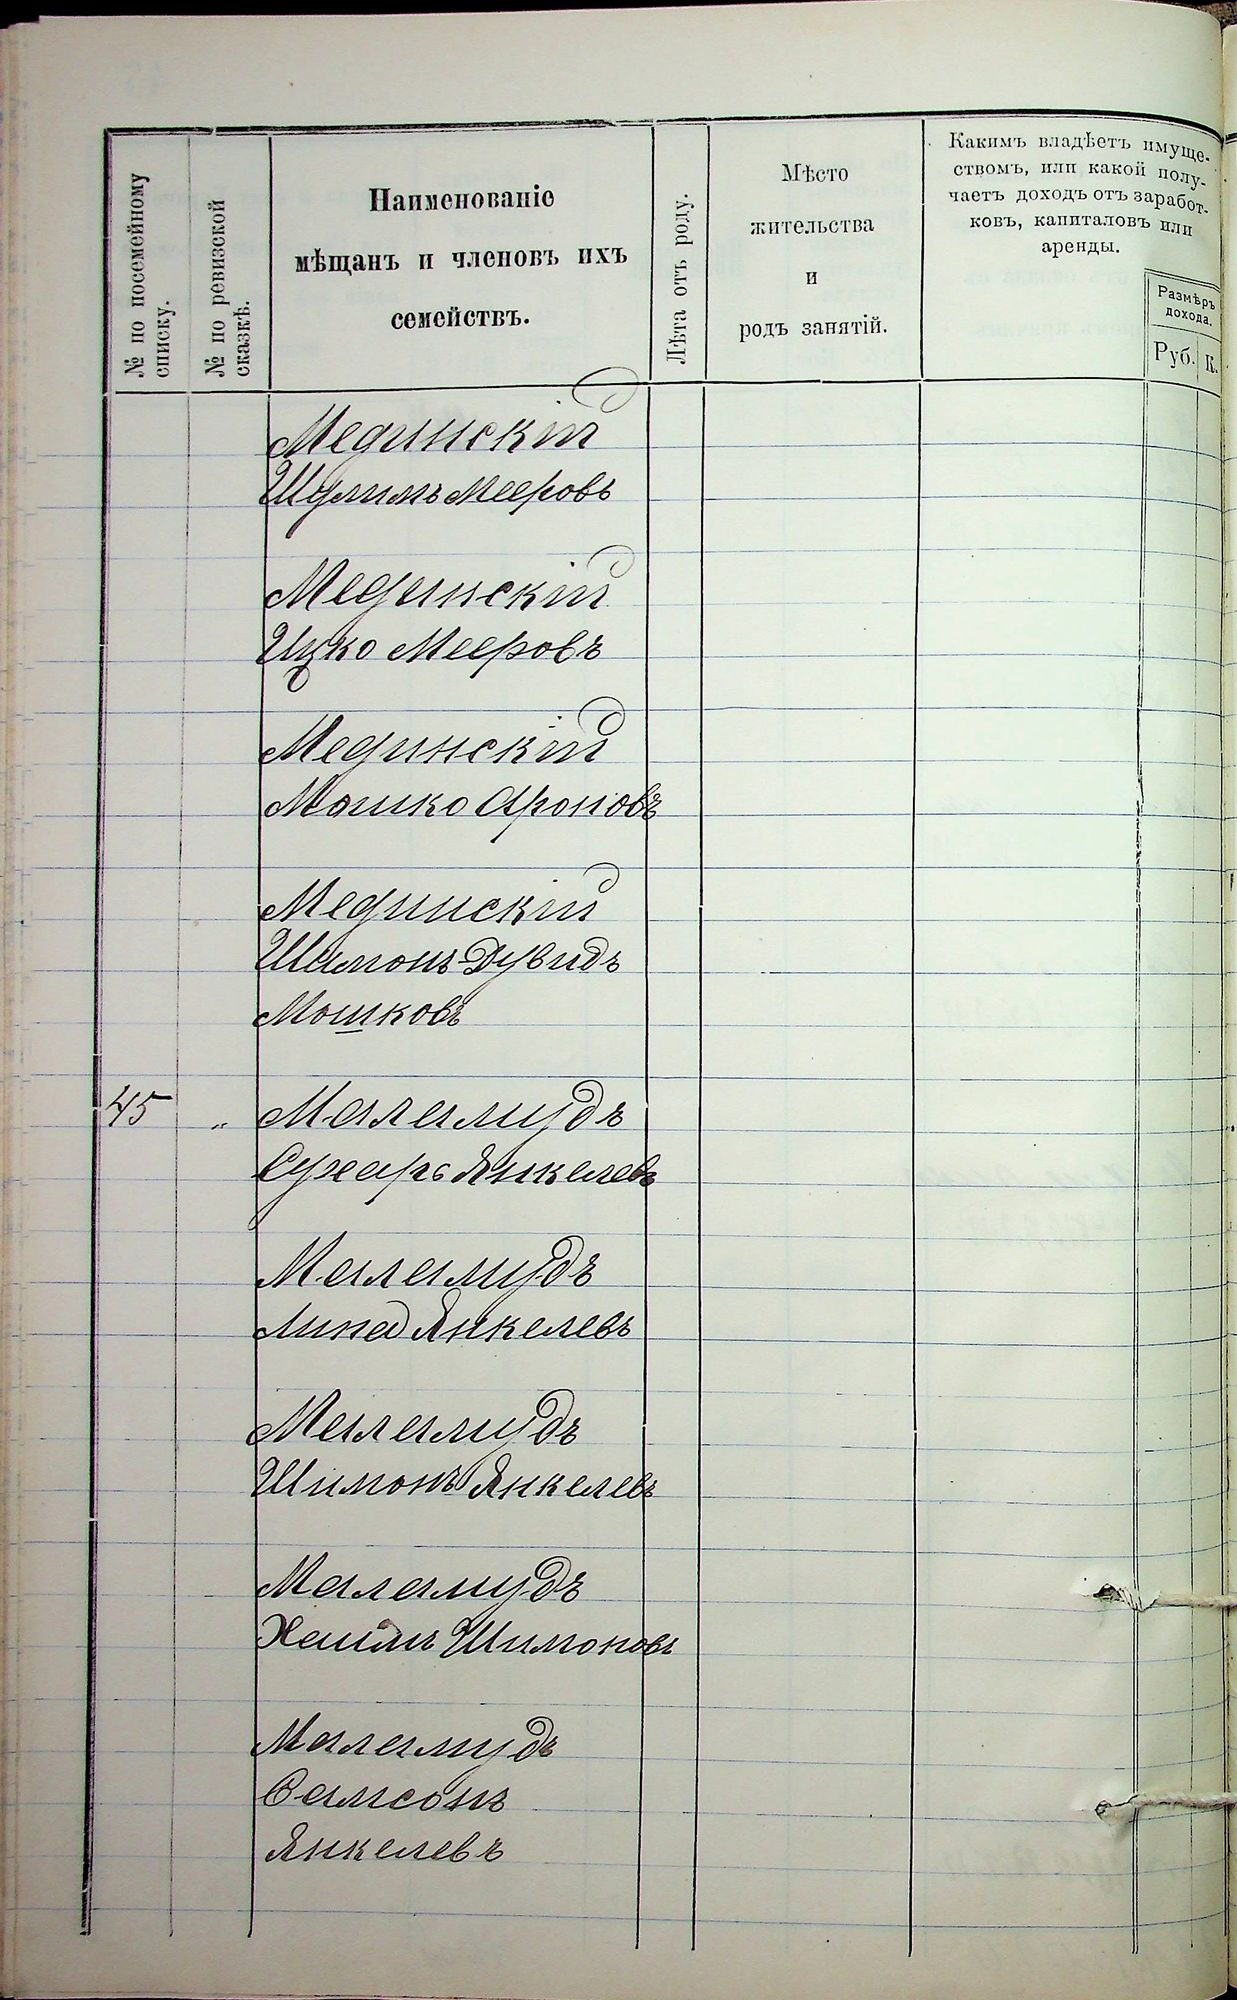 № по посемейному
списку.
№ по ревизской
сказкѣ.
Наименованіе
мѣщанъ и членовъ ихъ
семействъ.
Лѣта отъ роду.
Мѣсто
жительства
и
родъ занятій.
Какимъ владѣетъ имуще-
ствомъ, или какой полу-
чаетъ доходъ отъ заработ-
ковъ, капиталовъ или
аренды.
Размѣръ
дохода.
Руб. К.
Мединскій
Шулимъ Мееровъ
Мединскій
Ицко Мееровъ
Мединскій
Мошко Ароновъ
Мединскій
Шимонъ-Дувидъ
Мошковъ
45 „ Маламудъ
Сухаръ Янкелевъ
Маламудъ
Липа Янкелевъ
Маламудъ
Шимонъ Янкелевъ
Маламудъ
Хаимъ Шимоновъ
Маламудъ
Самсонъ
Янкелевъ